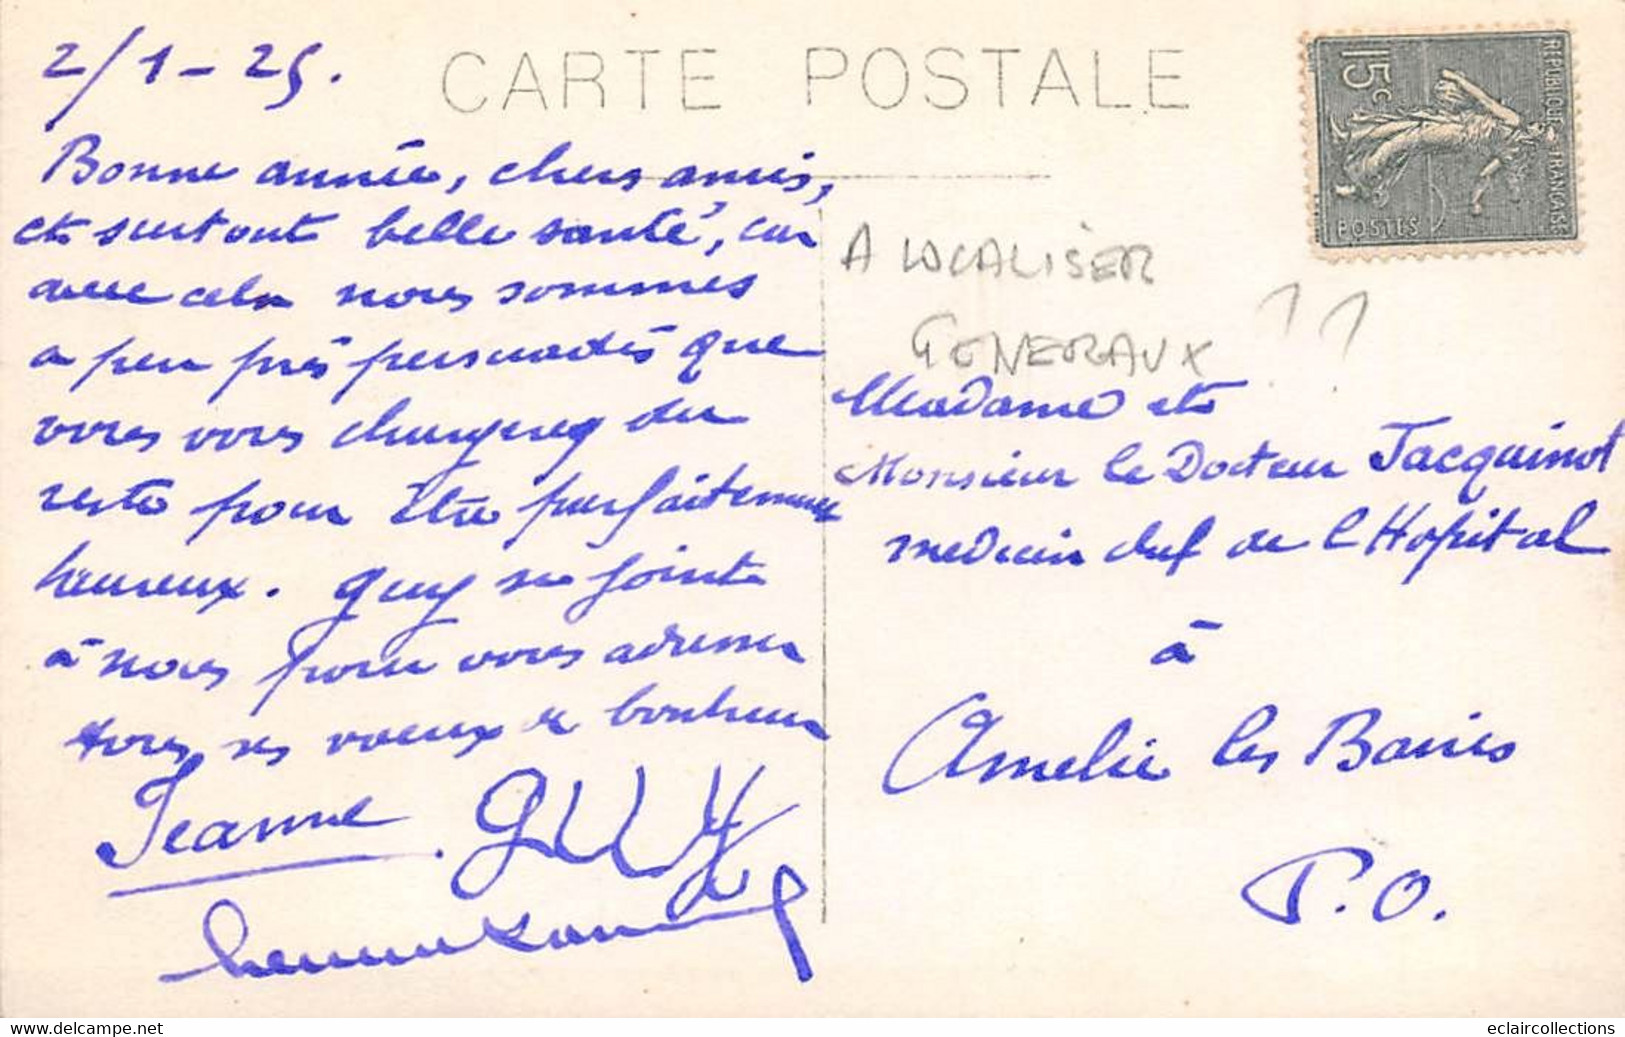 2/1-25.
CARTE POSTALE
REPUBLIQUE FRANÇAISE
15c
POSTES
Bonne année, chers amis,
et surtout belle santé, car
avec cela nous sommes
a peu près persuadés que
vous vous chargerez du
reste pour être parfaitement
heureux. Guy se joint
à nous pour vous adresser
tous ses voeux de bonheur
Jeanne. GUY
A LOCALISER
GENERAUX ??
Madame et
Monsieur le Docteur Jacquinot
medecin chef de l'Hopital
à
Amelie les Bains
P.O.
www.delcampe.net
eclaircollections